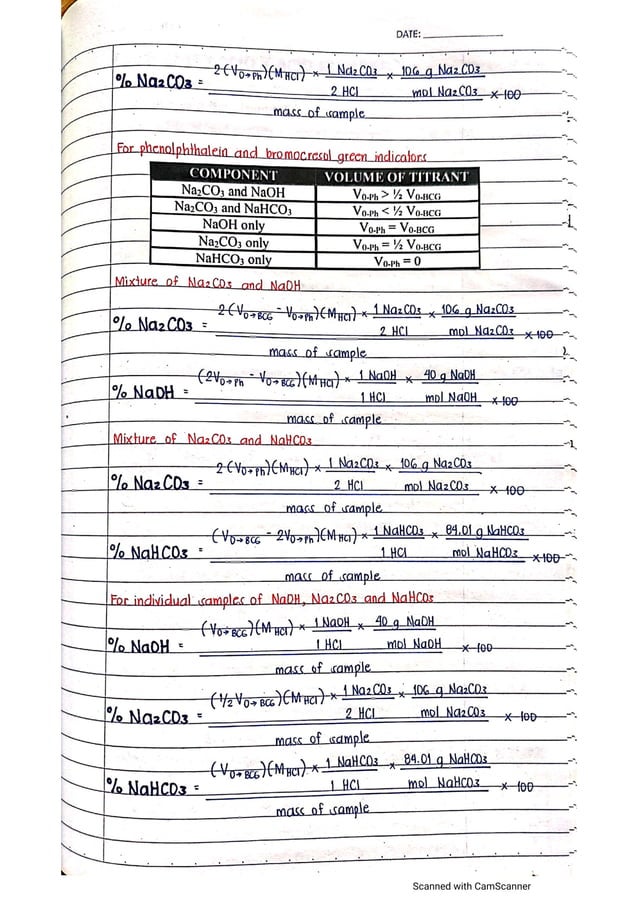 DATE:
% Na2CO3 = 2(V0→Ph)(MHCl) × 1 Na2CO3 / 2 HCl × 106 g Na2CO3 / mol Na2CO3 × 100
mass of sample
For phenolphthalein and bromocresol green indicators
COMPONENT VOLUME OF TITRANT
Na2CO3 and NaOH V0-Ph > ½ V0-BCG
Na2CO3 and NaHCO3 V0-Ph < ½ V0-BCG
NaOH only V0-Ph = V0-BCG
Na2CO3 only V0-Ph = ½ V0-BCG
NaHCO3 only V0-Ph = 0
Mixture of Na2CO3 and NaOH
% Na2CO3 = 2(V0→BCG - V0→Ph)(MHCl) × 1 Na2CO3 / 2 HCl × 106 g Na2CO3 / mol Na2CO3 × 100
mass of sample
% NaOH = (2V0→Ph - V0→BCG)(MHCl) × 1 NaOH / 1 HCl × 40 g NaOH / mol NaOH × 100
mass of sample
Mixture of Na2CO3 and NaHCO3
% Na2CO3 = 2(V0→Ph)(MHCl) × 1 Na2CO3 / 2 HCl × 106 g Na2CO3 / mol Na2CO3 × 100
mass of sample
% NaHCO3 = (V0→BCG - 2V0→Ph)(MHCl) × 1 NaHCO3 / 1 HCl × 84.01 g NaHCO3 / mol NaHCO3 × 100
mass of sample
For individual samples of NaOH, Na2CO3 and NaHCO3
% NaOH = (V0→BCG)(MHCl) × 1 NaOH / 1 HCl × 40 g NaOH / mol NaOH × 100
mass of sample
% Na2CO3 = (1/2 V0→BCG)(MHCl) × 1 Na2CO3 / 2 HCl × 106 g Na2CO3 / mol Na2CO3 × 100
mass of sample
% NaHCO3 = (V0→BCG)(MHCl) × 1 NaHCO3 / 1 HCl × 84.01 g NaHCO3 / mol NaHCO3 × 100
mass of sample
Scanned with CamScanner